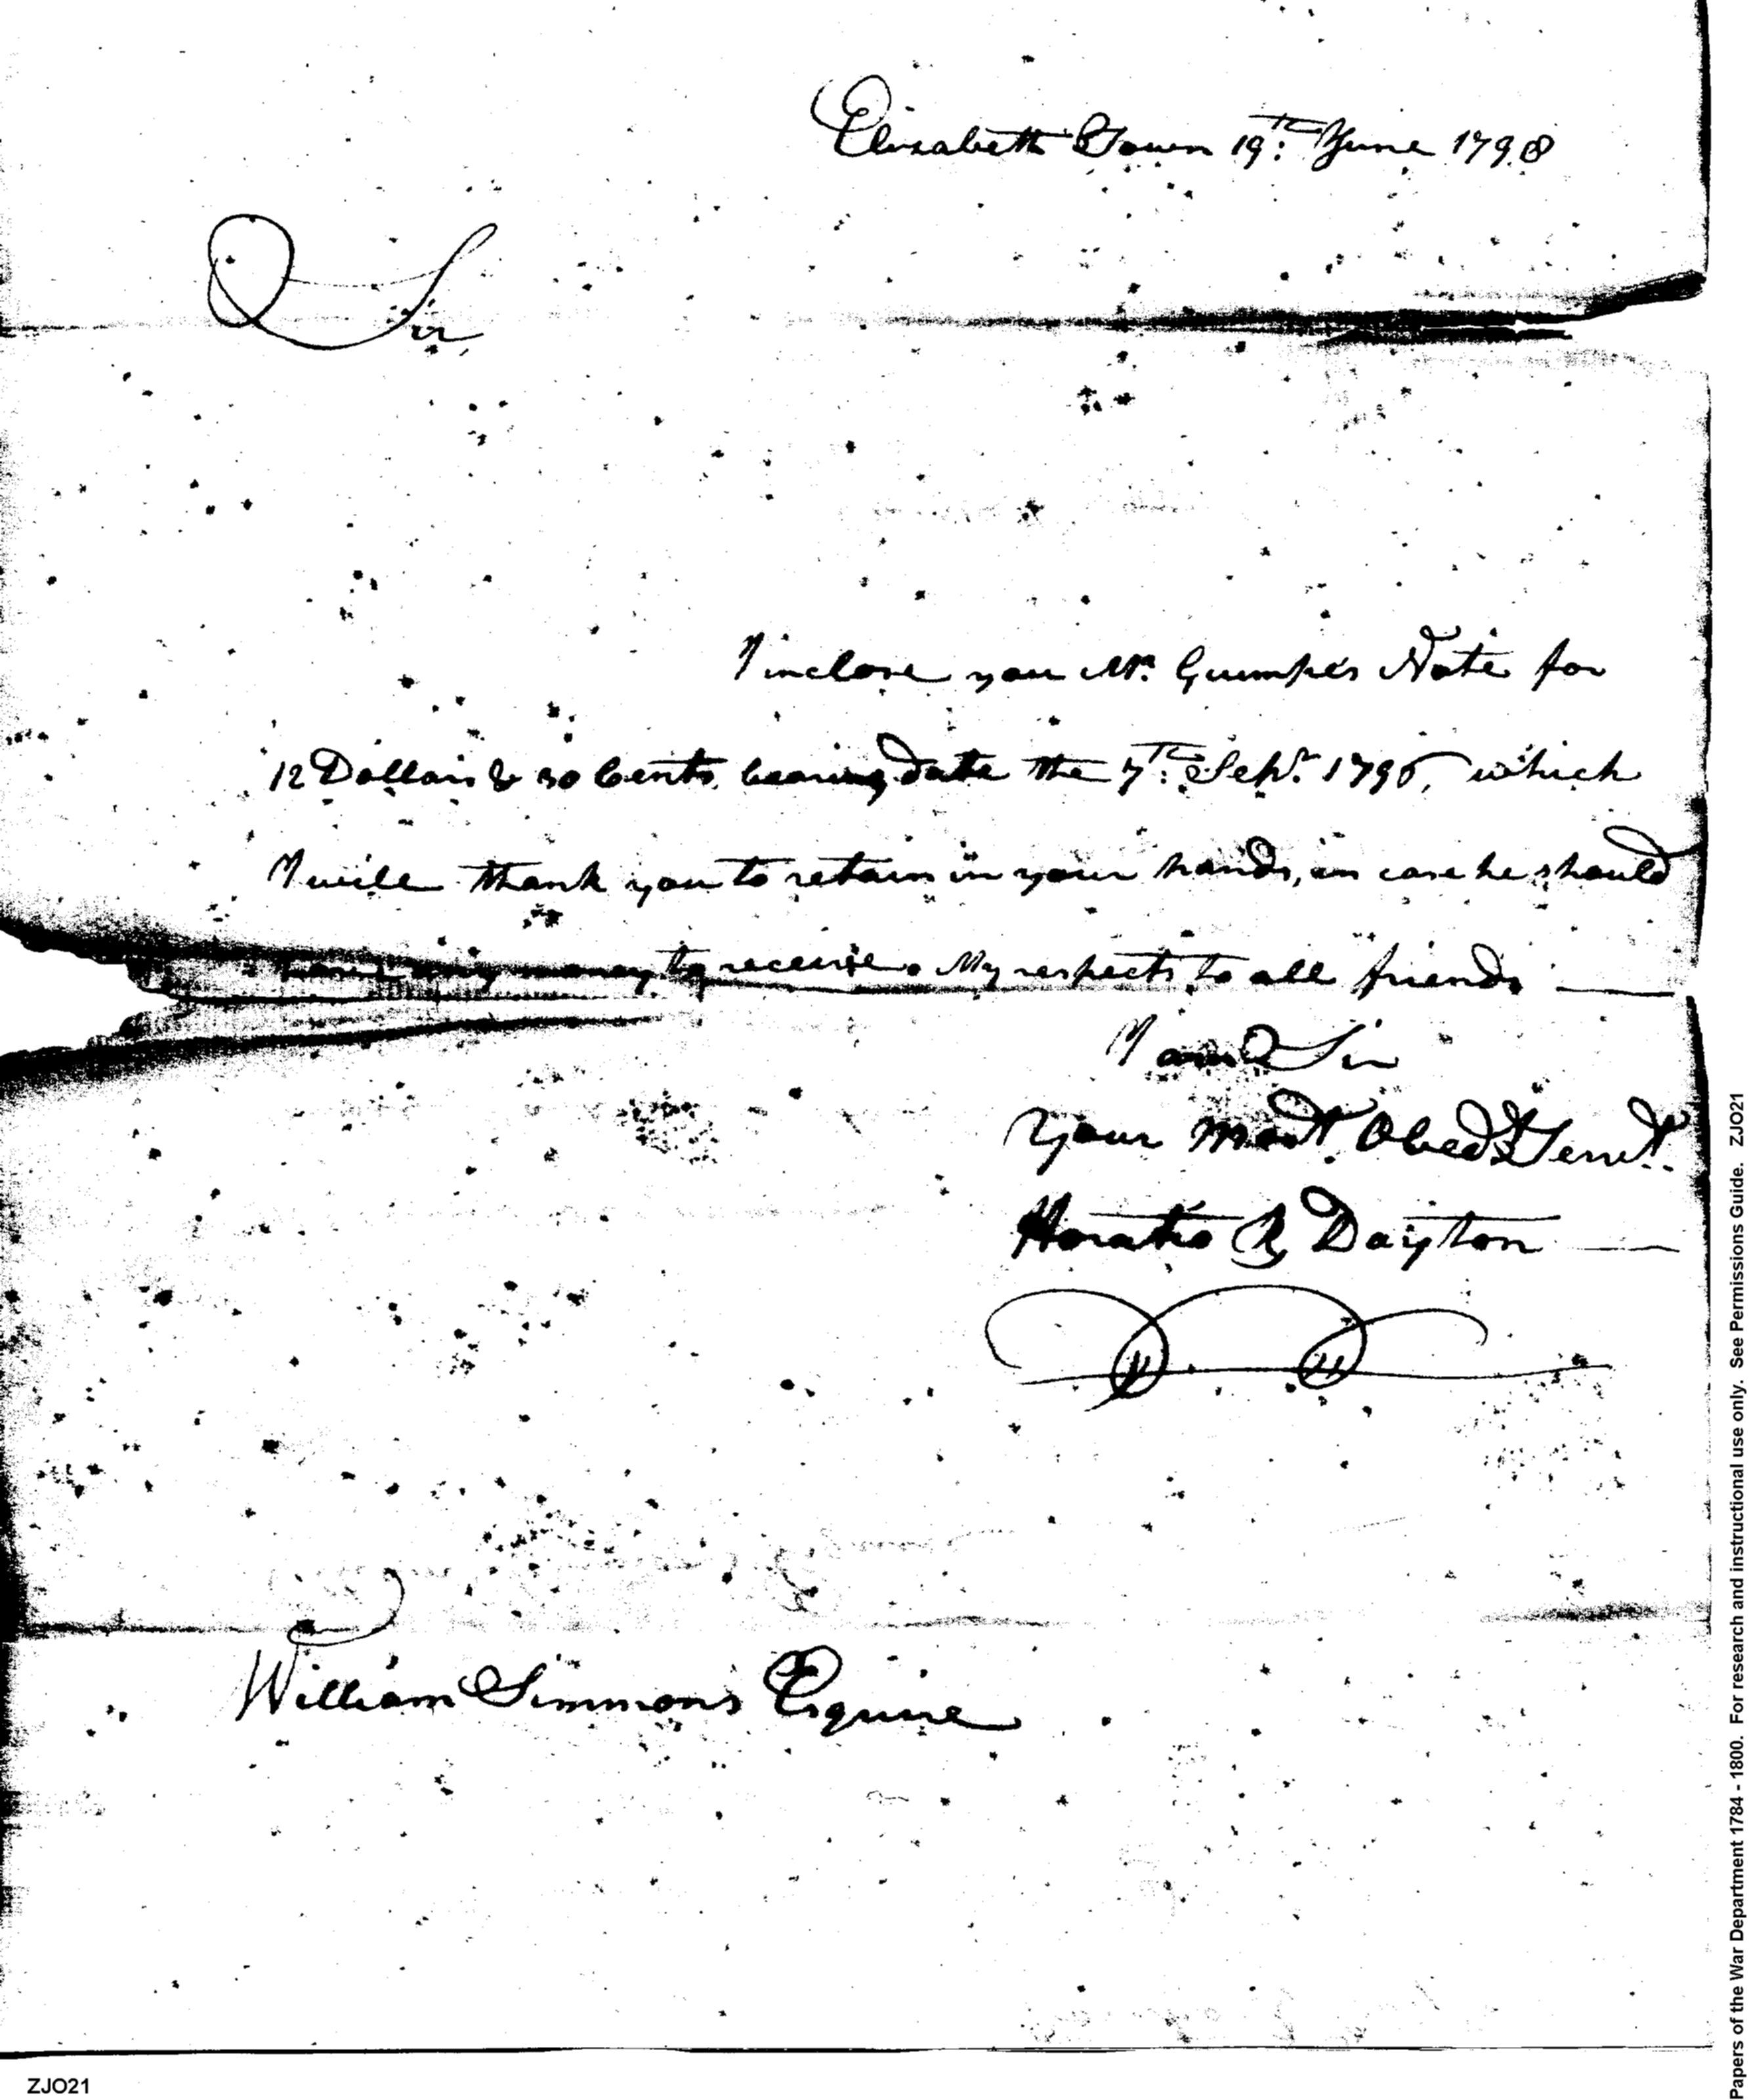 Elizabeth Town 19th: June 1798
Sir
I inclose you Mr. Gumpher's Note for
12 Dollars & 30 Cents, bearing date the 7th: Sepr. 1796, which
I will thank you to retain in your hands, in case he should
have any money to receive. My respects to all friends —
I am Sir
Your most. Obedt Servt.
Horatio R Dayton —
William Simmons Esquire
ZJO21
Papers of the War Department 1784 - 1800. For research and instructional use only. See Permissions Guide. ZJO21